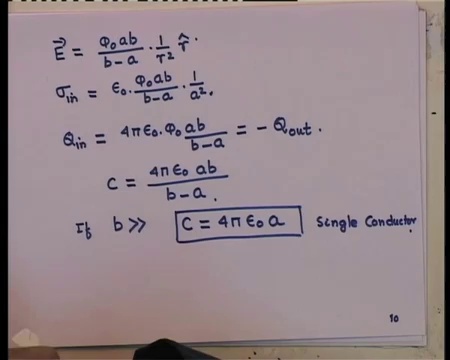 E⃗ = φ₀ab/(b-a) · 1/r² r̂.
σin = ε₀. φ₀ab/(b-a) · 1/a².
Qin = 4πε₀.φ₀ ab/(b-a) = - Qout.
C = 4πε₀ ab/(b-a).
If b>> C = 4πε₀ a Single Conductor
10